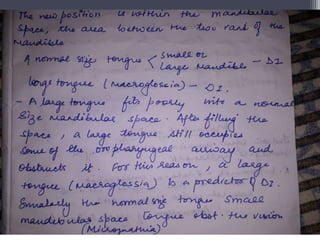 The new position is within the mandibular
space, the area between the two rami of the
Mandible
A normal size tongue < small or
large Mandible - DI
Large tongue (Macroglossia) - DI.
- A large tongue fits poorly into a normal
size Mandibular space. After filling the
space, a large tongue still occupies
some of the oropharyngeal airway and
obstructs it. For this reason, a large
tongue (Macroglassia) is a predictor of DI.
Similarly the normal size tongue small
mandibular space tongue obst. the vision
(Micrognathia)